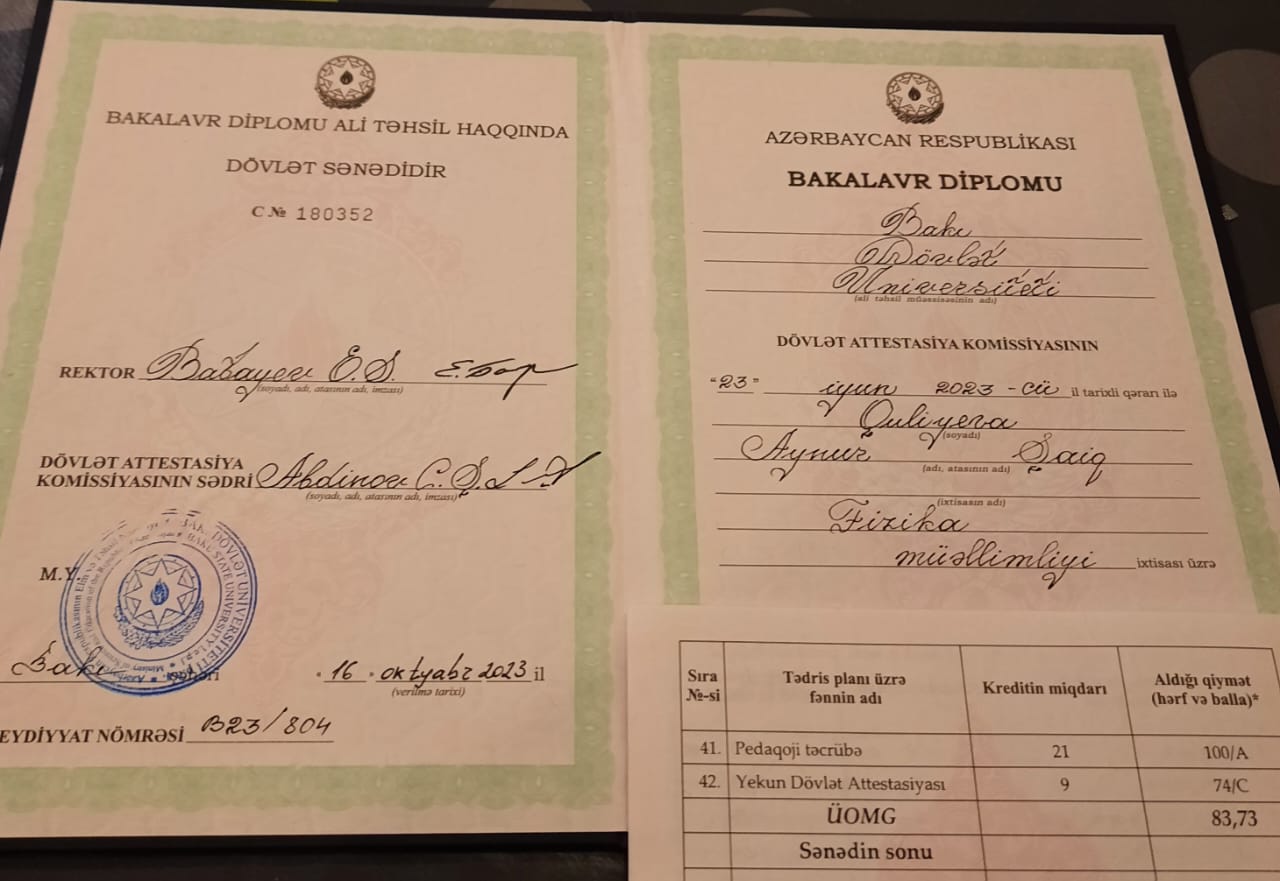 BAKALAVR DİPLOMU ALİ TƏHSİL HAQQINDA
DÖVLƏT SƏNƏDİDİR
C № 180352
REKTOR Babayev E.S.
(soyadı, adı, atasının adı, imzası)
DÖVLƏT ATTESTASİYA
KOMİSSİYASININ SƏDRİ Abdinov C.Ş.
(soyadı, adı, atasının adı, imzası)
M.Y.
BAKI DÖVLƏT UNİVERSİTETİ
BAKU STATE UNIVERSITY
Bakı şəhəri "16" oktyabr 2023 il
(verilmə tarixi)
EYDİYYAT NÖMRƏSİ B23/804
AZƏRBAYCAN RESPUBLİKASI
BAKALAVR DİPLOMU
Bakı
Dövlət
Universiteti
(ali təhsil müəssisəsinin adı)
DÖVLƏT ATTESTASİYA KOMİSSİYASININ
"23" iyun 2023-cü il tarixli qərarı ilə
Quliyeva
(soyadı)
Aynur Şaiq
(adı, atasının adı)
(ixtisasın adı)
Fizika
müəllimliyi ixtisası üzrə
Sıra №-si Tədris planı üzrə fənnin adı Kreditin miqdarı Aldığı qiymət (hərf və balla)*
41. Pedaqoji təcrübə 21 100/A
42. Yekun Dövlət Attestasiyası 9 74/C
ÜOMG 83,73
Sənədin sonu